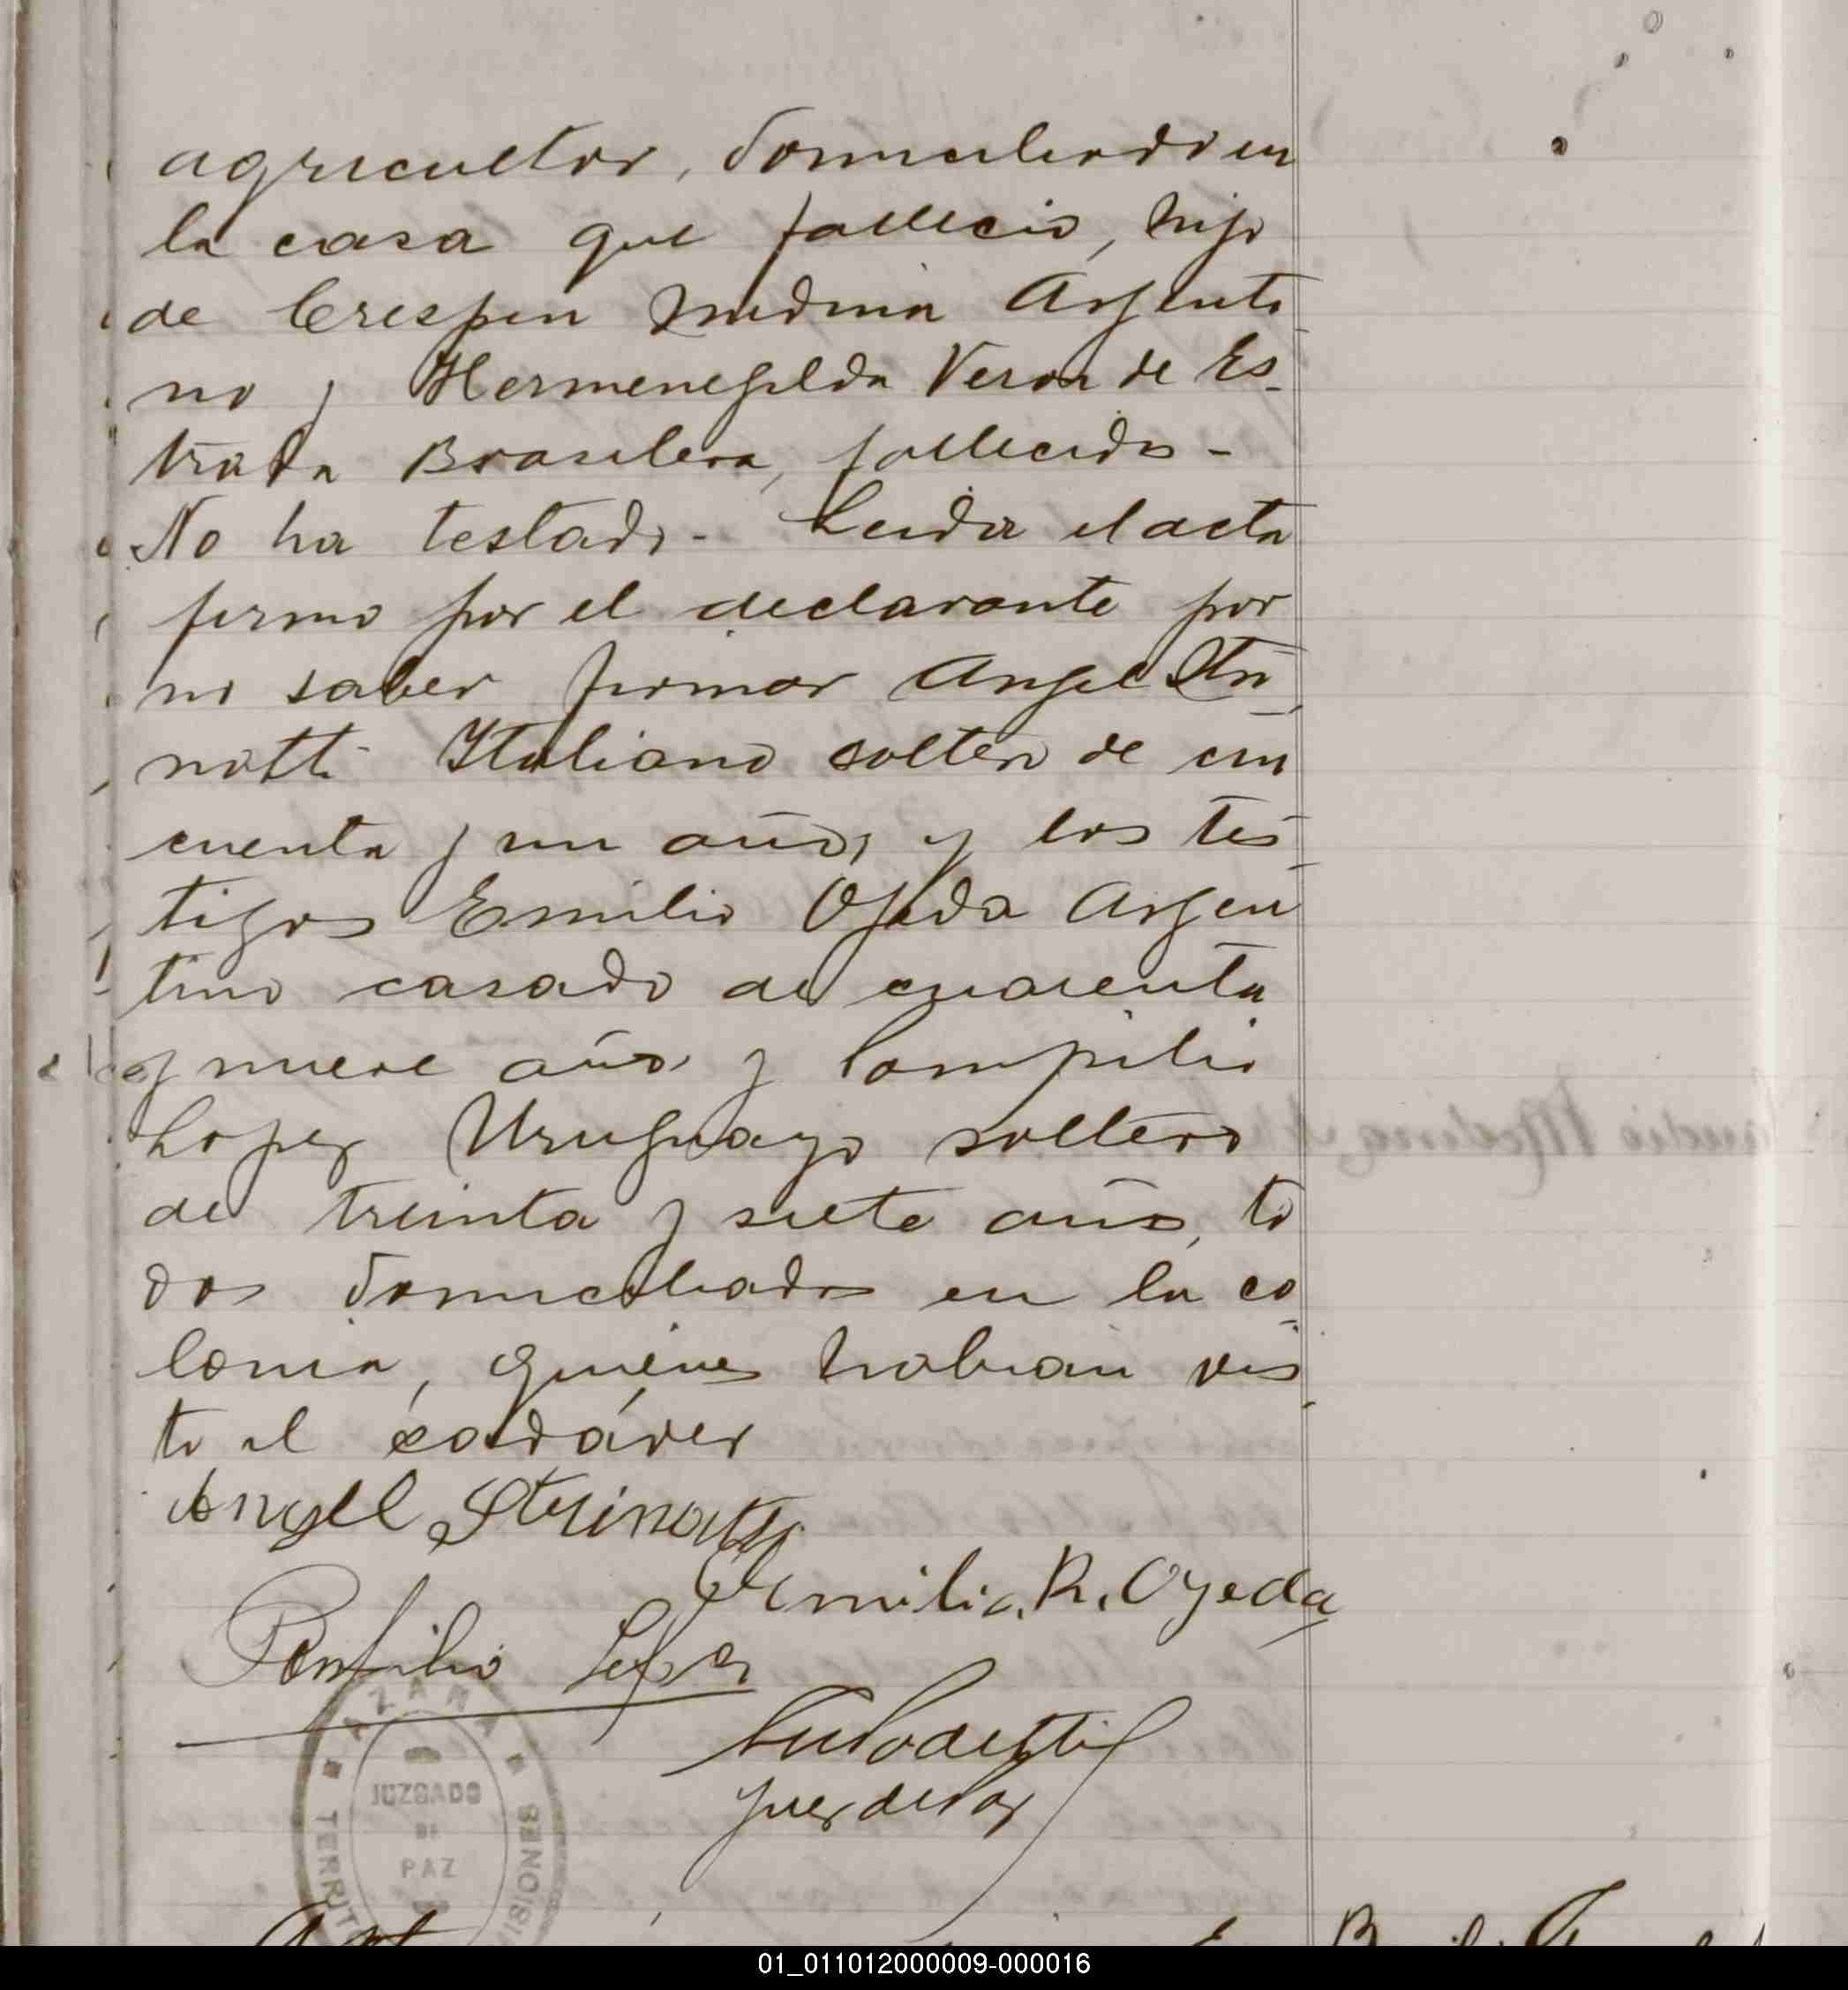 agricultor, domiciliado en
la casa que fallecio, hijo
de Crespin Medina Argenti-
no y Hermenegilda Veron de Es-
trada Brasilera, fallecidos -
No ha testado - Leida el acta
firmo por el declarante por
no saber firmar Angel Stri-
notti Italiano soltero de cin
cuenta y un años, y los tes-
tigos Emilio Ojeda Argen
tino casado de cuarenta
y nueve años y Pompilio
Lopez Uruguayo soltero
de treinta y siete años, to
dos domiciliados en la co-
lonia, quienes habian vis-
to el cadáver
Angel Strinatti
Emilio R. Ojeda
Pompilio Lopez
Juez de Paz
AZARA
JUZGADO
DE
PAZ
TERRIT
MISIONES